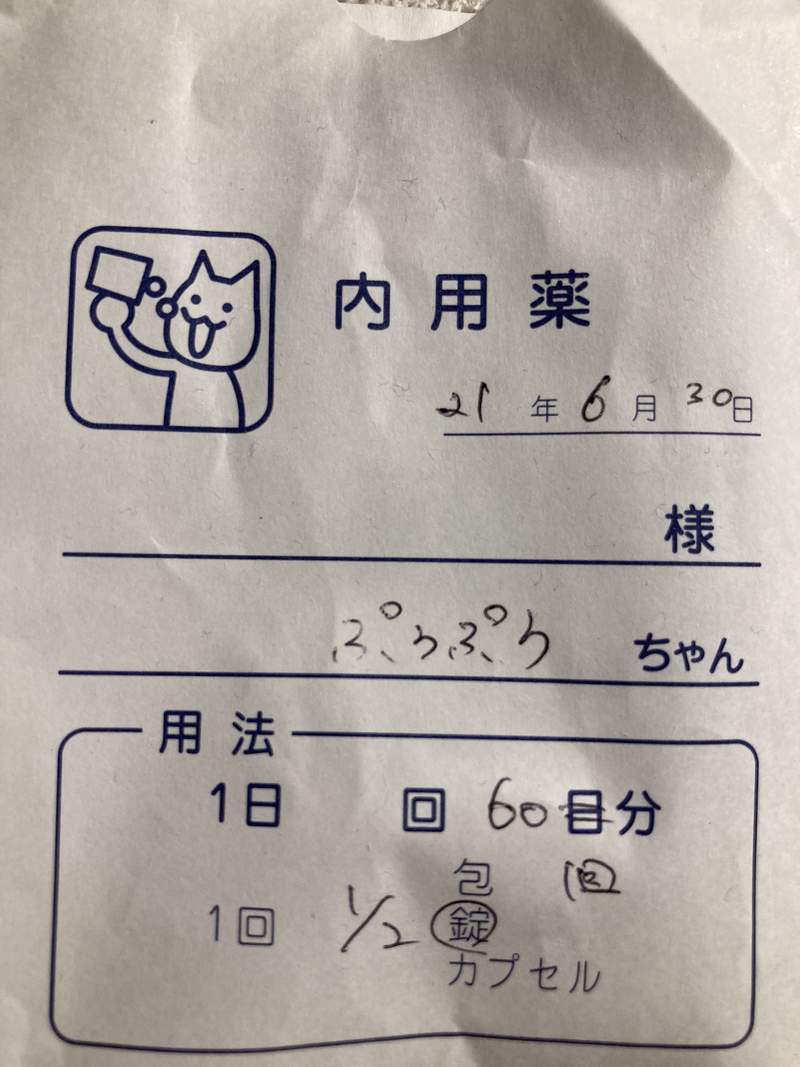 内用薬
21年6月30日
様
ぷらぷら ちゃん
用法
1日 回 60日分
包 回
1回 1/2 錠
カプセル